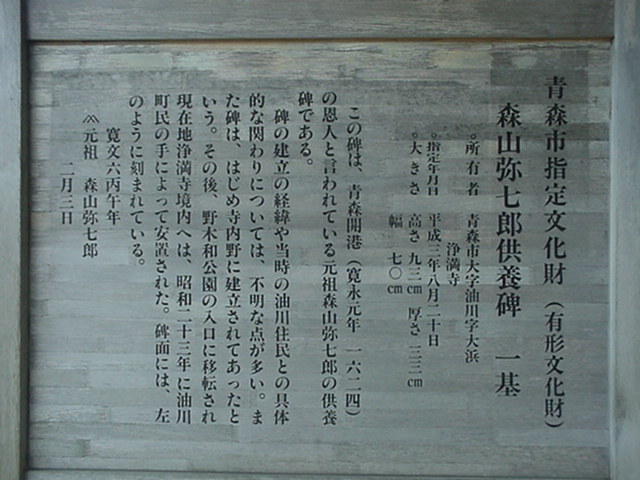 青森市指定文化財（有形文化財）
森山弥七郎供養碑　一基
○所有者　青森市大字油川字大浜
浄満寺
○指定年月日　平成三年八月二十日
○大きさ　高さ　九三㎝　厚さ　三三㎝
幅　七〇㎝
この碑は、青森開港（寛永元年　一六二四）
の恩人と言われている元祖森山弥七郎の供養
碑である。
碑の建立の経緯や当時の油川住民との具体
的な関わりについては、不明な点が多い。ま
た碑は、はじめ寺内野に建立されてあったと
いう。その後、野木和公園の入口に移転され
現在地浄満寺境内へは、昭和二十三年に油川
町民の手によって安置された。碑面には、左
のように刻まれている。
寛文六丙午年
元祖　森山弥七郎
二月三日